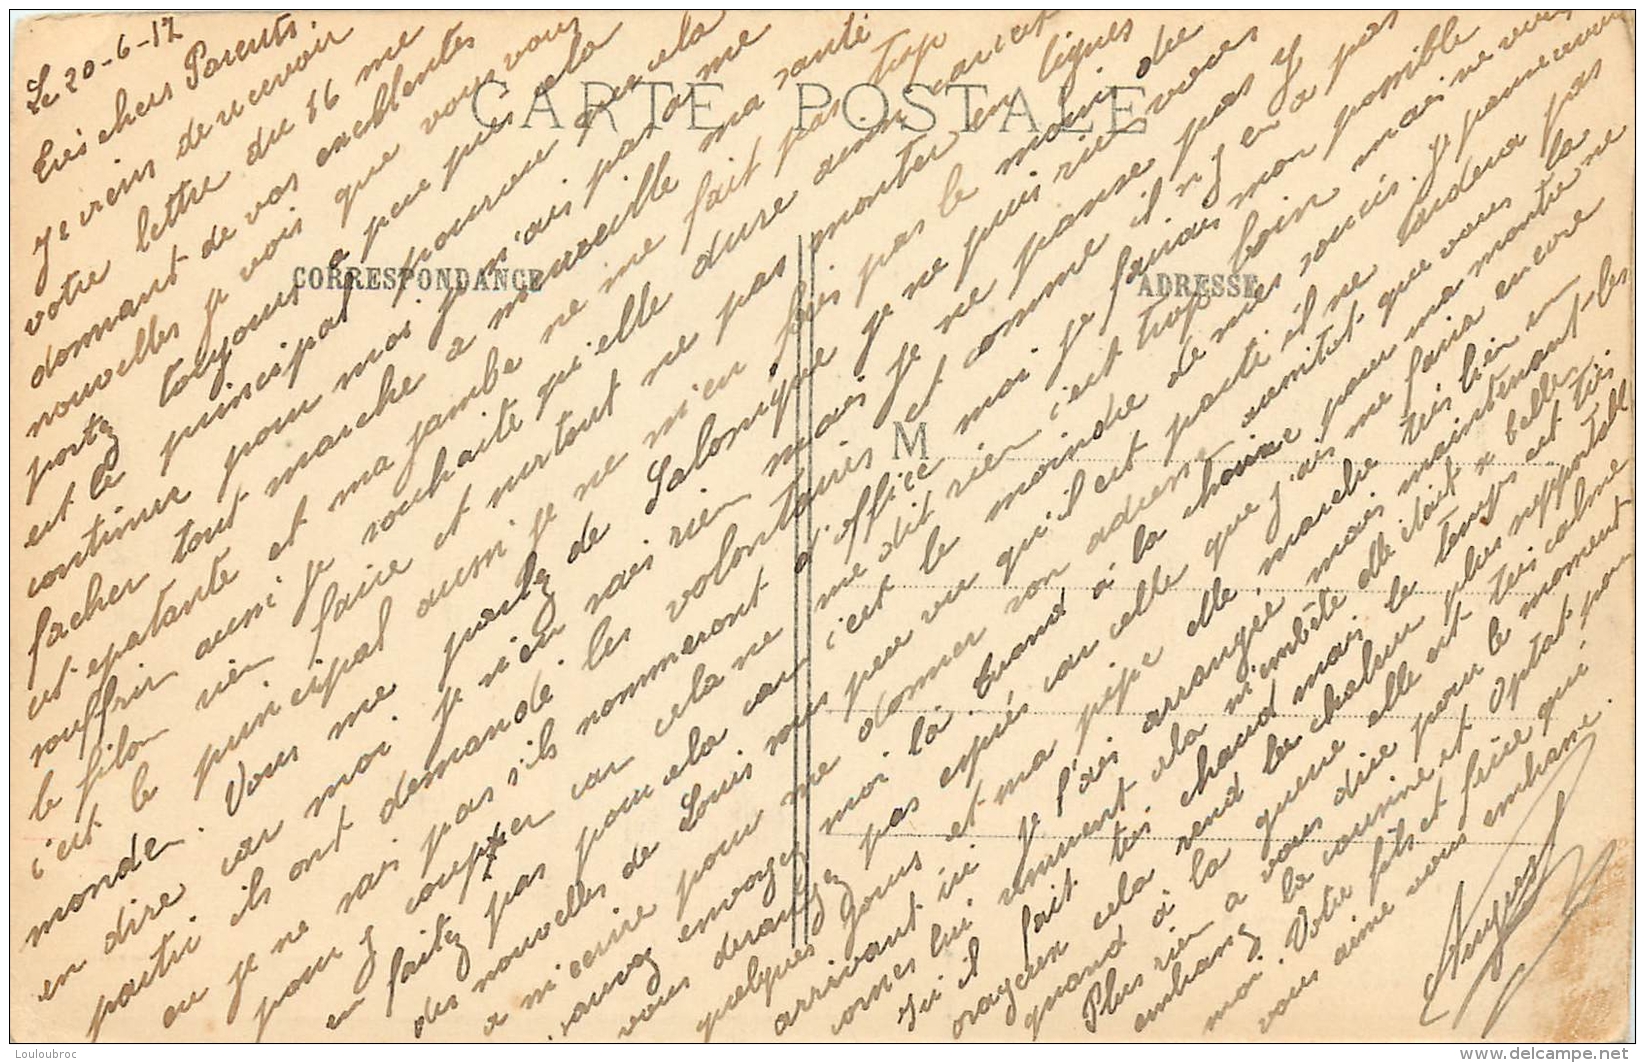 Le 20-6-17
Très chers Parents.
Je viens de recevoir
votre lettre du 16 me
donnant de vos excellentes
nouvelles je vois que vous vous
portez toujours à peu près cela
est le principal pourvu que cela
continue pour moi je n'ais pas a me
facher tout marche a merveille ma santé
est epatante et ma jambe ne me fait pas trop
souffrir aussi je souhaite qu'elle dure ainsi car c'est
le filon rien faire et surtout ne pas monter en lignes
c'est le principal aussi je ne m'en fais pas le moin du
monde. Vous me parlez de Salonique je ne puis rien vous
en dire car moi je n'en sais rien mais je ne pense pas y
partir ils ont demandé les volontaires et comme il n'y en a pas
ou je ne sais pas s'ils nommeront d'office moi je ferais mon possible
pour y couper car cela ne me dit rien c'est trop loin mais ne vous
en faitez pas pour cela car c'est le moindre de mes soucis. Je
des nouvelles de Louis vu qu'il est parti il ne tardera pas
a m'ecrire pour me donner son adresse
envoyez moi la quand à la chaine pour ma montre ne
vous derangez pas car celle que j'ais me fais encore
quelques jours et ma pipe elle marche très bien en
arrivant ici je l'ais arrangée mais maintenant les
Ici il fait très chaud mais le temps est très
orageux cela rend la chaleur plus
quand à la guerre elle est très calme
Plus rien a vous dire pour le moment
moi. Votre fils et frère qui
vous aime vous embrasse.
CARTE POSTALE
CORRESPONDANCE
ADRESSE
M
Louloubroc
delcampe.net